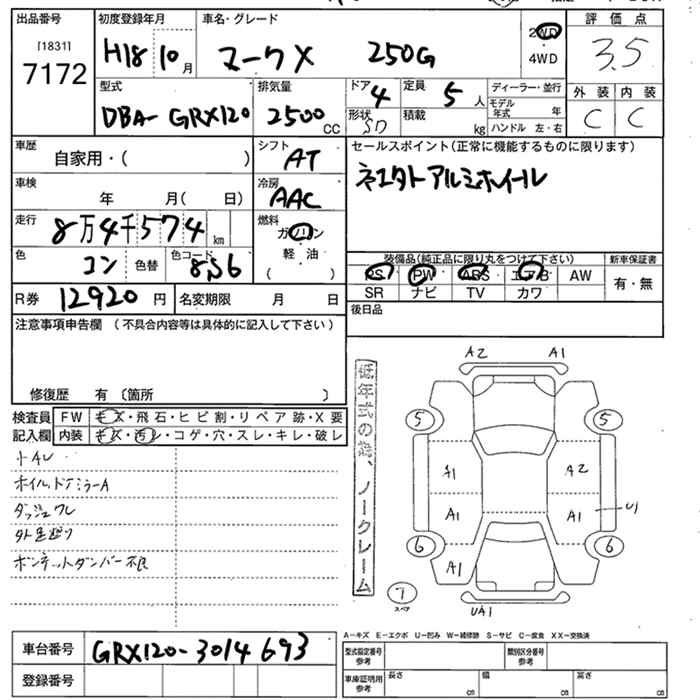 出品番号 初度登録年月 車名・グレード 評価点
[1831]
7172 H18 10月 マークX 250G 2WD 4WD 3.5
型式 排気量 ドア 4 定員 5人 ディーラー・並行 外装 内装
DBA-GRX120 2500CC 形状 SD 積載 kg モデル年式 年 C C
ハンドル 左・右
車歴 自家用・( ) シフト AT セールスポイント(正常に機能するものに限ります)
車検 年 月( 日) 冷房 AAC
走行 8万4千574km 燃料 ガソリン
軽油
( )
色 コン 色替 色コード 8S6 装備品(純正品に限り丸をつけて下さい) 新車保証書
PS PW ABS エアB AW 有・無
R券 12920円 名変期限 月 日 SR ナビ TV カワ
注意事項申告欄 (不具合内容等は具体的に記入して下さい) 後日品
修復歴 有 〔箇所 〕
検査員 FW キズ・飛石・ヒビ割・リペア跡・X要
記入欄 内装 キズ・汚レ・コゲ・穴・スレ・キレ・破レ
ホイル、ドアミラーA
ダッシュワレ
ボンネットダンパー不良
低年式の為、ノークレーム
A2 A1
5 5
A1 A2
A1 A1 U1
6 6
A1
7
スペア
UA1
A-キズ E-エクボ U-凹み W-補修跡 S-サビ C-腐食 XX-交換済
車台番号 GRX120-3014693 型式指定番号 参考 類別区分番号 参考
登録番号 車庫証明用 参考 長さ cm 幅 cm 高さ cm